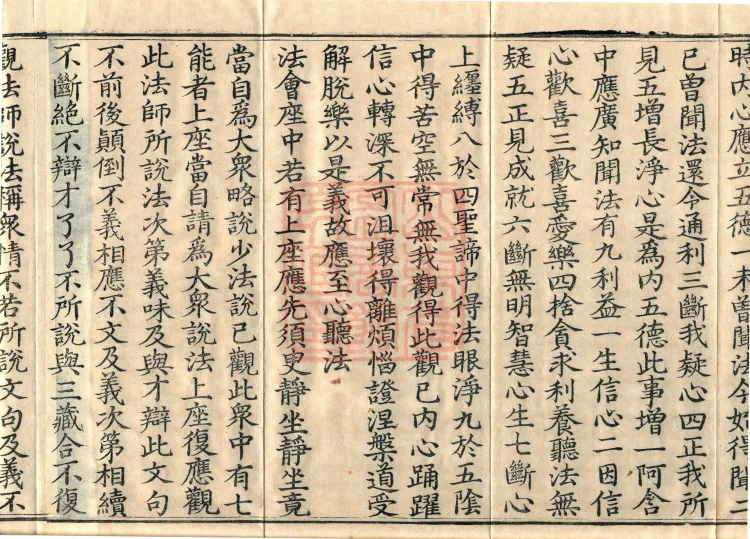 時內心應立五德一未曾聞法今始得聞二
已曾聞法還令通利三斷我疑心四正我所
見五增長淨心是爲內五德此事增一阿含
中應廣知聞法有九利益一生信心二因信
心歡喜三歡喜愛樂四捨貪求利養聽法無
疑五正見成就六斷無明智慧心生七斷心
上纏縛八於四聖諦中得法眼淨九於五陰
中得苦空無常無我觀得此觀已內心踊躍
信心轉深不可沮壞得離煩惱證涅槃道受
解脫樂以是義故應至心聽法
法會座中若有上座應先須臾靜坐靜坐竟
當自爲大衆略說少法說已觀此衆中有七
能者上座當自請爲大衆說法上座復應觀
此法師所說法次第義味及與才辯此文句
不前後顚倒不義相應不文及義次第相續
不斷絶不辯才了了不所說與三藏合不復
觀法師說法稱衆情不若所說文句及義不